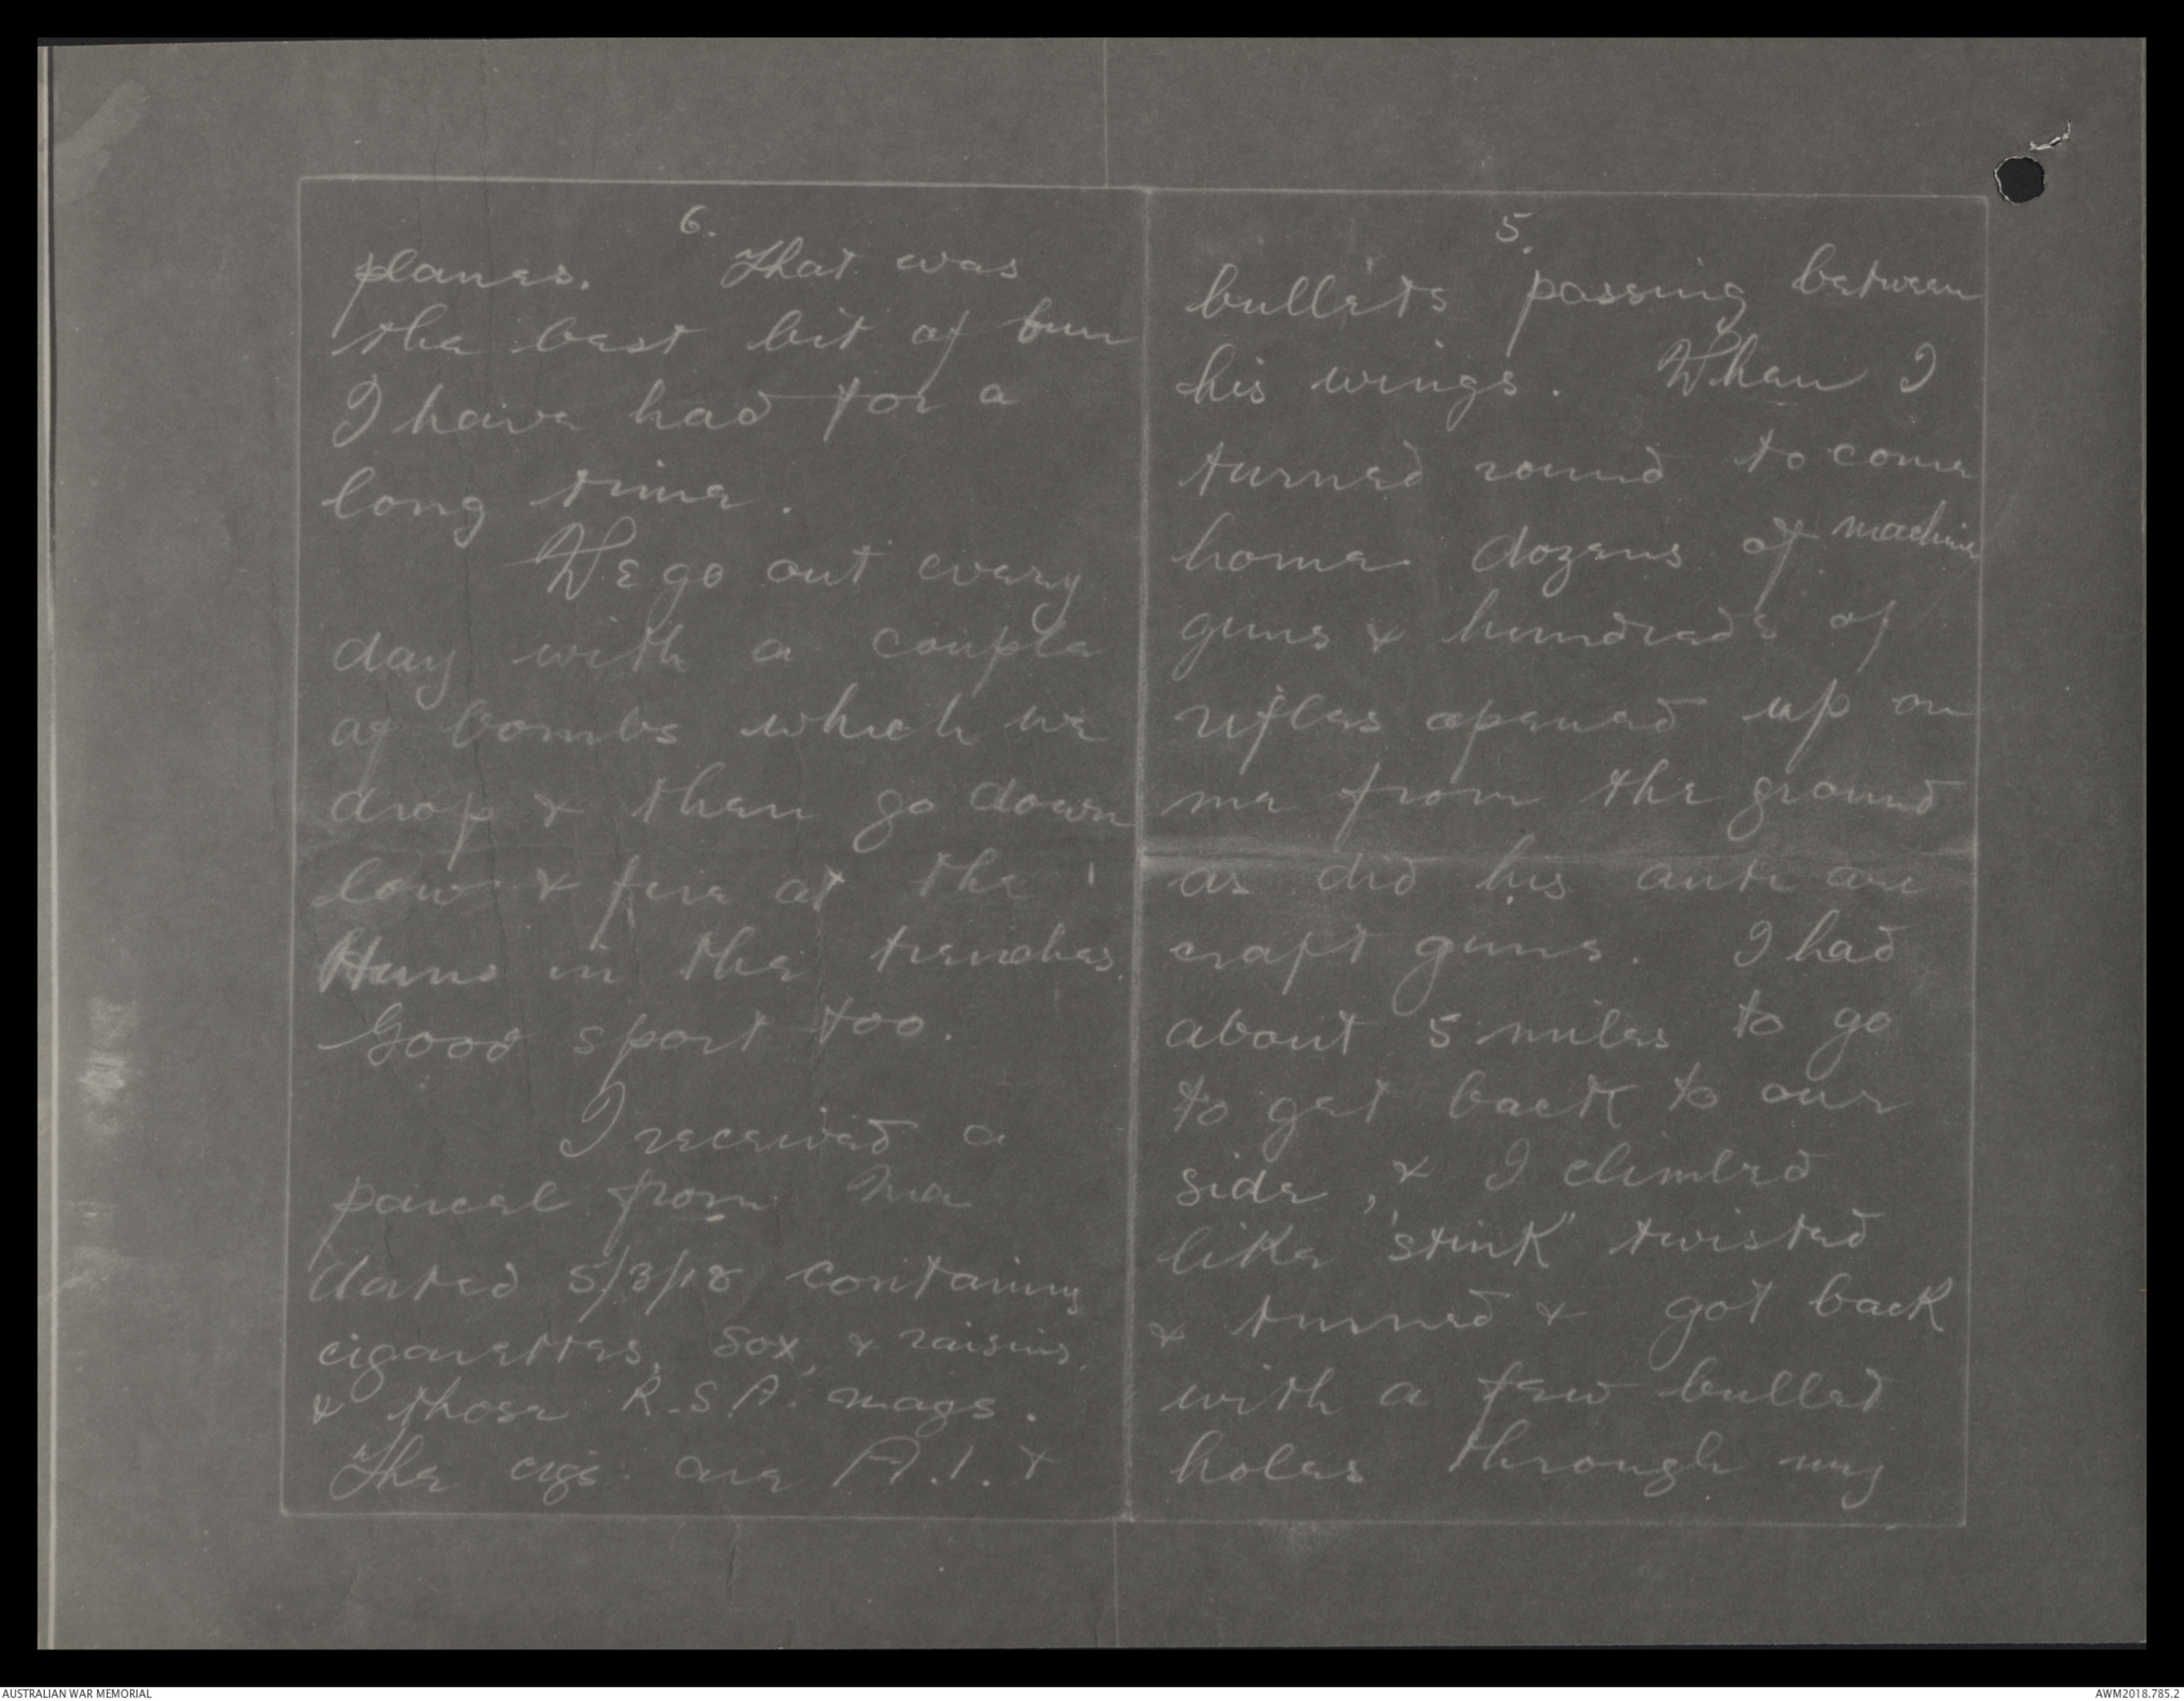 5.
bullets passing between
his wings. When I
turned round to come
home dozens of machine
guns & hundreds of
rifles opened up on
me from the ground
as did his anti air
craft guns. I had
about 5 miles to go
to get back to our
side, & I climbed
like "stink" twisted
& turned & got back
with a few bullet
holes through my
6.
planes. That was
the best bit of fun
I have had for a
long time.
We go out every
day with a couple
of bombs which we
drop & then go down
low & fire at the
Huns in the trenches.
Good sport too.
I received a
parcel from Ma
dated 5/3/18 containing
cigarettes, sox, & raisins,
& those R.S.A. mags.
The cigs are A.1. &
AUSTRALIAN WAR MEMORIAL
AWM2018.785.2